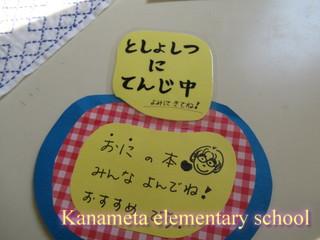 としょしつ
に
てんじ中
よみにきてね!
おにの本
みんなよんでね!
おすすめ
Kanameta elementary school